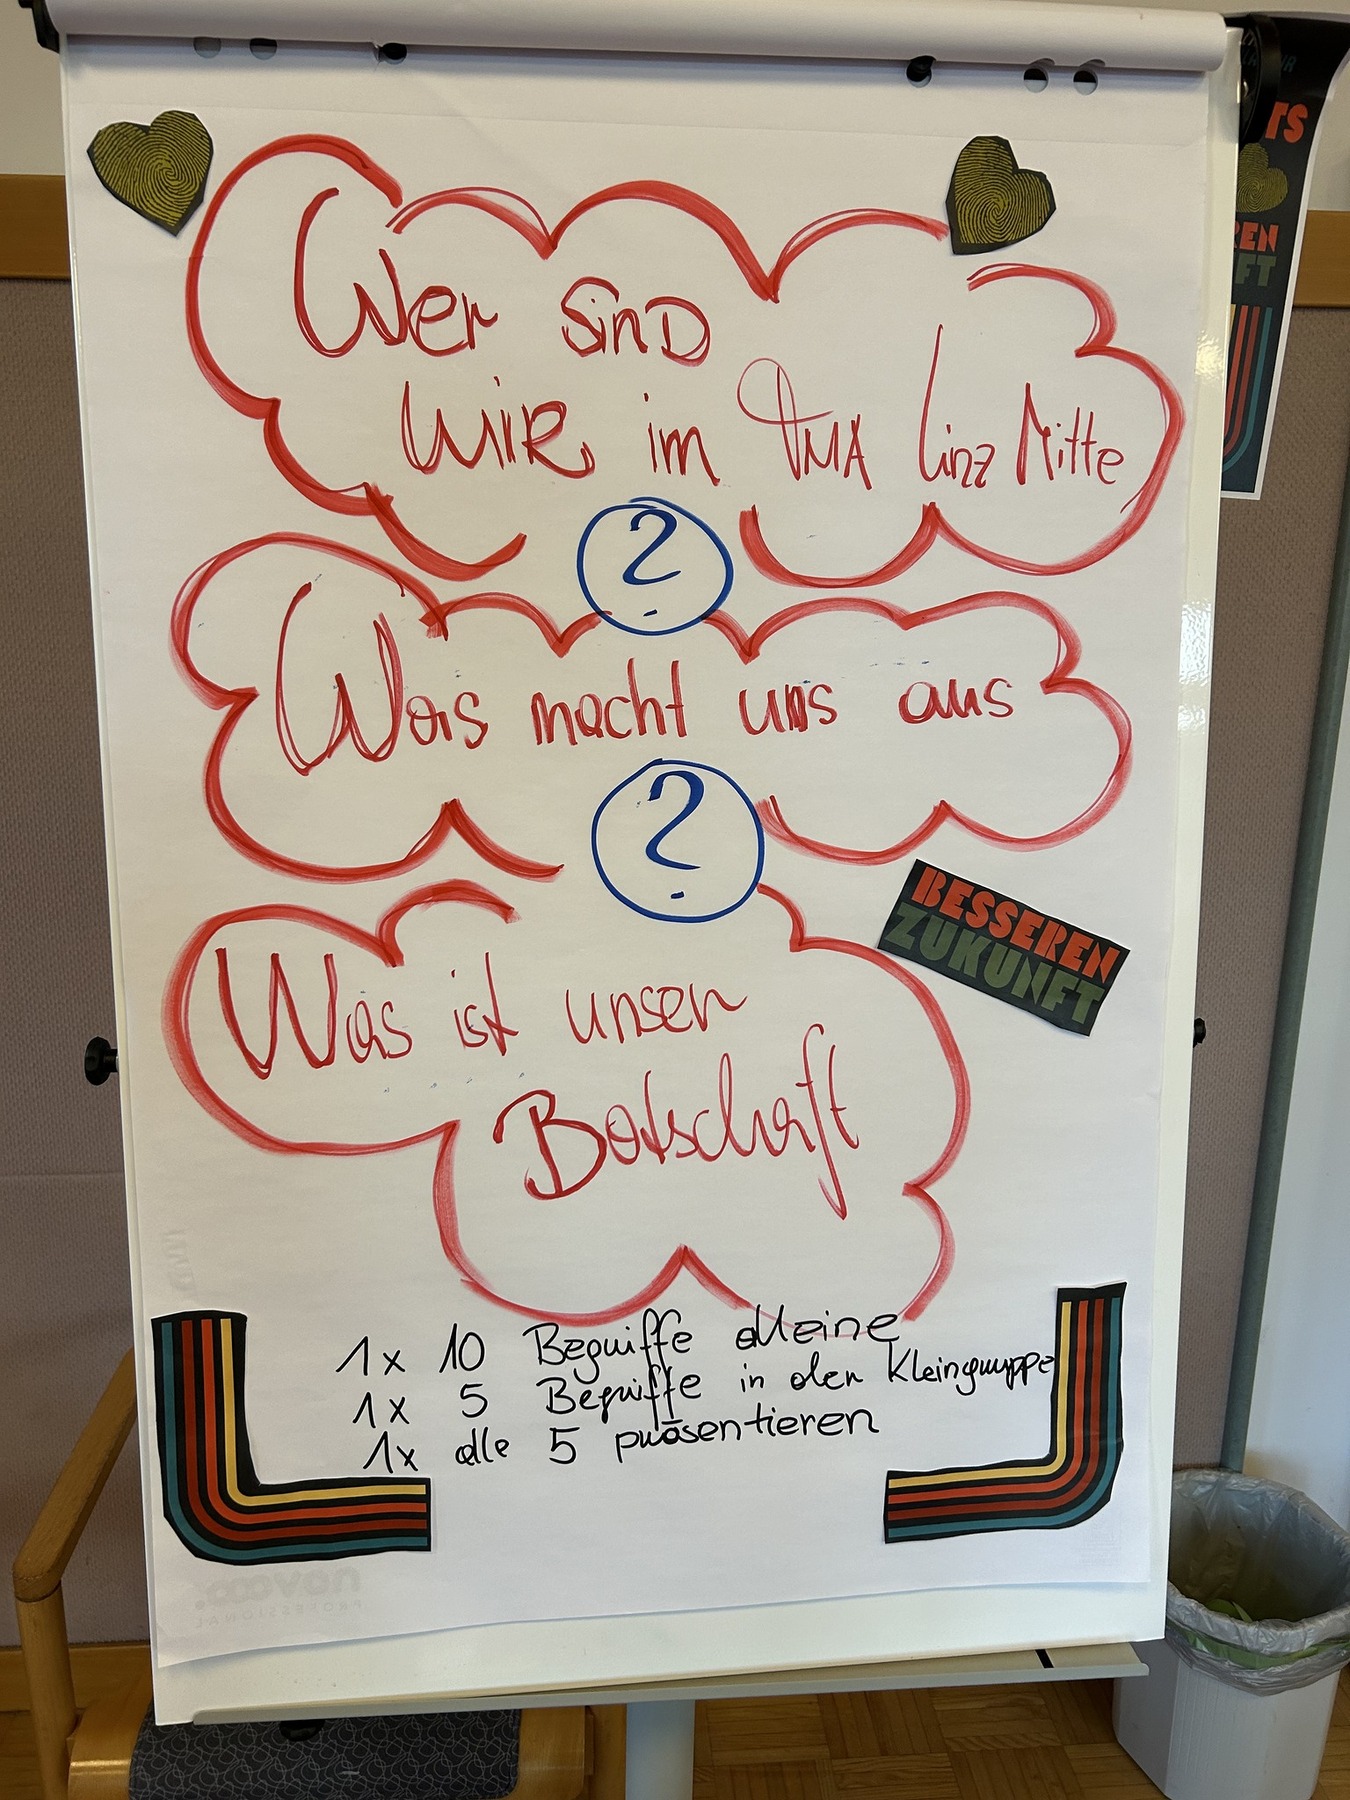 Wer sind
wir im VMA Linz Mitte
?
Was macht uns aus
?
BESSEREN
ZUKUNFT
Was ist unser
Botschaft
1x 10 Begriffe alleine
1x 5 Begriffe in der Kleingruppe
1x alle 5 präsentieren
TS
REN
FT
novooo
PROFESSIONAL